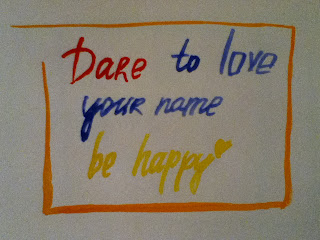 Dare to love
your name
be happy